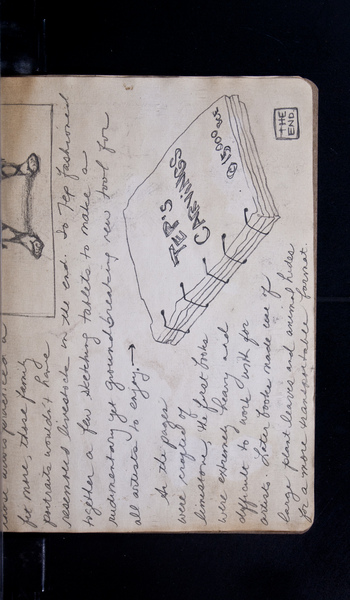 for more, these family
portraits wouldn't have
resembled livestock in the end. So Tep fashioned
together a few sketching tablets to make a
rudimentary yet groundbreaking new tool for
all artists to enjoy. →
TEP'S
CARVINGS
© 15,000 BCE
As the pages
were crafted of
limestone, the first books
were extremely heavy and
difficult to work with for
artists. Later books made use of
large plant leaves and animal hides
for a more transportable format.
THE
END.